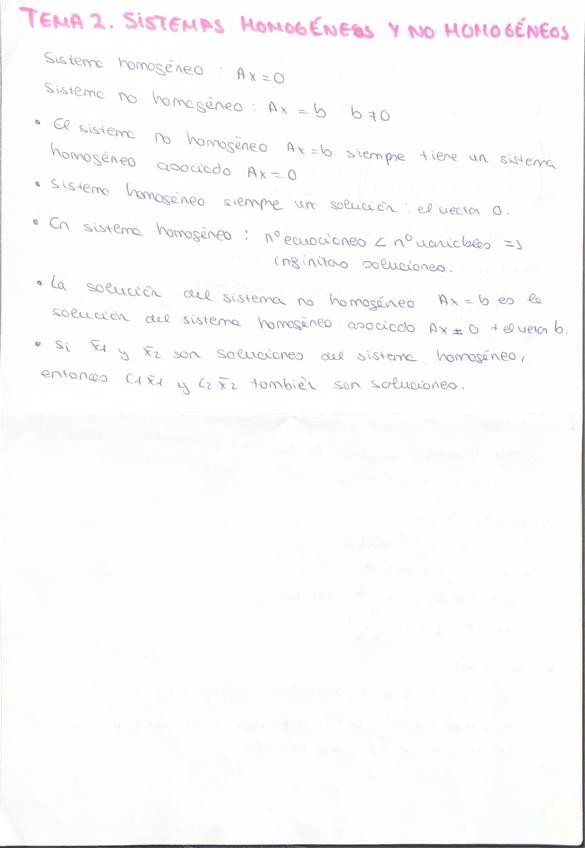 TEMA 2. SISTEMAS HOMOGÉNEOS Y NO HOMOGÉNEOS
Sistema homogéneo : Ax = 0
Sistema no homogéneo : Ax = b b ≠ 0
• El sistema no homogéneo Ax = b siempre tiene un sistema
homogéneo asociado Ax = 0
• Sistema homogéneo siempre un solución : el vector 0.
• En sistema homogéneo : nº ecuaciones < nº variables =>
infinitas soluciones.
• La solución del sistema no homogéneo Ax = b es la
solución del sistema homogéneo asociado Ax = 0 + el vector b.
• Si x̄1 y x̄2 son soluciones del sistema homogéneo,
entonces C1 x̄1 y C2 x̄2 también son soluciones.